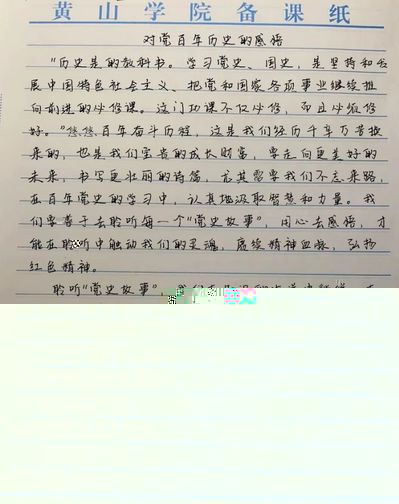 黄山学院备课纸
对党百年历史的感悟
"历史是的教科书。学习党史、国史,是坚持和发
展中国特色社会主义、把党和国家各项事业继续推
向前进的必修课。这门功课不仅必修,而且必须修
好。"悠悠百年奋斗历程,这是我们经历千辛万苦换
来的,也是我们宝贵的成长财富,要走向更美好的
未来,书写更壮丽的诗篇,尤其需要我们不忘来路,
在百年党史的学习中,认真地汲取智慧和力量。我
们要善于去聆听每一个"党史故事",用心去感悟,才
能在聆听中触动我们的灵魂,赓续精神血脉,弘扬
红色精神。
聆听"党史故事",我们